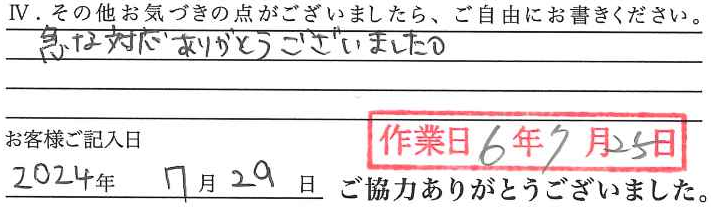 Ⅳ．その他お気づきの点がございましたら、ご自由にお書きください。
急な対応ありがとうございました。
お客様ご記入日
作業日6年7月25日
2024年 7月29日 ご協力ありがとうございました。